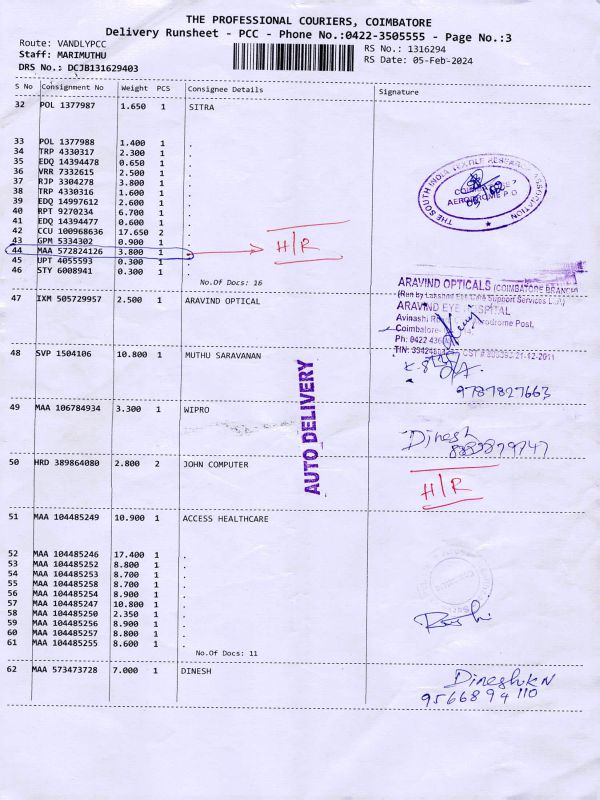 THE PROFESSIONAL COURIERS, COIMBATORE
Delivery Runsheet - PCC - Phone No.:0422-3505555 - Page No.:3
Route: VANDLYPCC
Staff: MARIMUTHU
DRS No.: DCJB131629403
RS No.: 1316294
RS Date: 05-Feb-2024
S No Consignment No Weight PCS Consignee Details Signature
32 POL 1377987 1.650 1 SITRA
33 POL 1377988 1.400 1 .
34 TRP 4330317 2.300 1 .
35 EDQ 14394478 0.650 1 .
36 VRR 7332615 2.500 1 .
37 RJP 3304278 3.800 1 .
38 TRP 4330316 1.600 1 .
39 EDQ 14997612 2.600 1 .
40 RPT 9270234 6.700 1 .
41 EDQ 14394477 0.600 1 .
42 CCU 100968636 17.650 2 .
43 GPM 5334302 0.900 1 .
44 MAA 572824126 3.800 1 .
45 UPT 4055593 0.300 1 .
46 STY 6008941 0.300 1 .
H/R
No.Of Docs: 16
THE SOUTH INDIA TEXTILE RESEARCH ASSOCIATION
AERODROME P.O
47 IXM 505729957 2.500 1 ARAVIND OPTICAL
ARAVIND OPTICALS (COIMBATORE BRANCH)
ARAVIND EYE HOSPITAL
48 SVP 1504106 10.800 1 MUTHU SARAVANAN
9787827663
AUTO DELIVERY
49 MAA 106784934 3.300 1 WIPRO
Dinesh
50 HRD 389864080 2.800 2 JOHN COMPUTER
H/R
51 MAA 104485249 10.900 1 ACCESS HEALTHCARE
52 MAA 104485246 17.400 1 .
53 MAA 104485252 8.800 1 .
54 MAA 104485253 8.700 1 .
55 MAA 104485258 8.700 1 .
56 MAA 104485254 8.900 1 .
57 MAA 104485247 10.800 1 .
58 MAA 104485250 2.350 1 .
59 MAA 104485256 8.900 1 .
60 MAA 104485257 8.800 1 .
61 MAA 104485255 8.600 1 .
No.Of Docs: 11
62 MAA 573473728 7.000 1 DINESH
9566894110